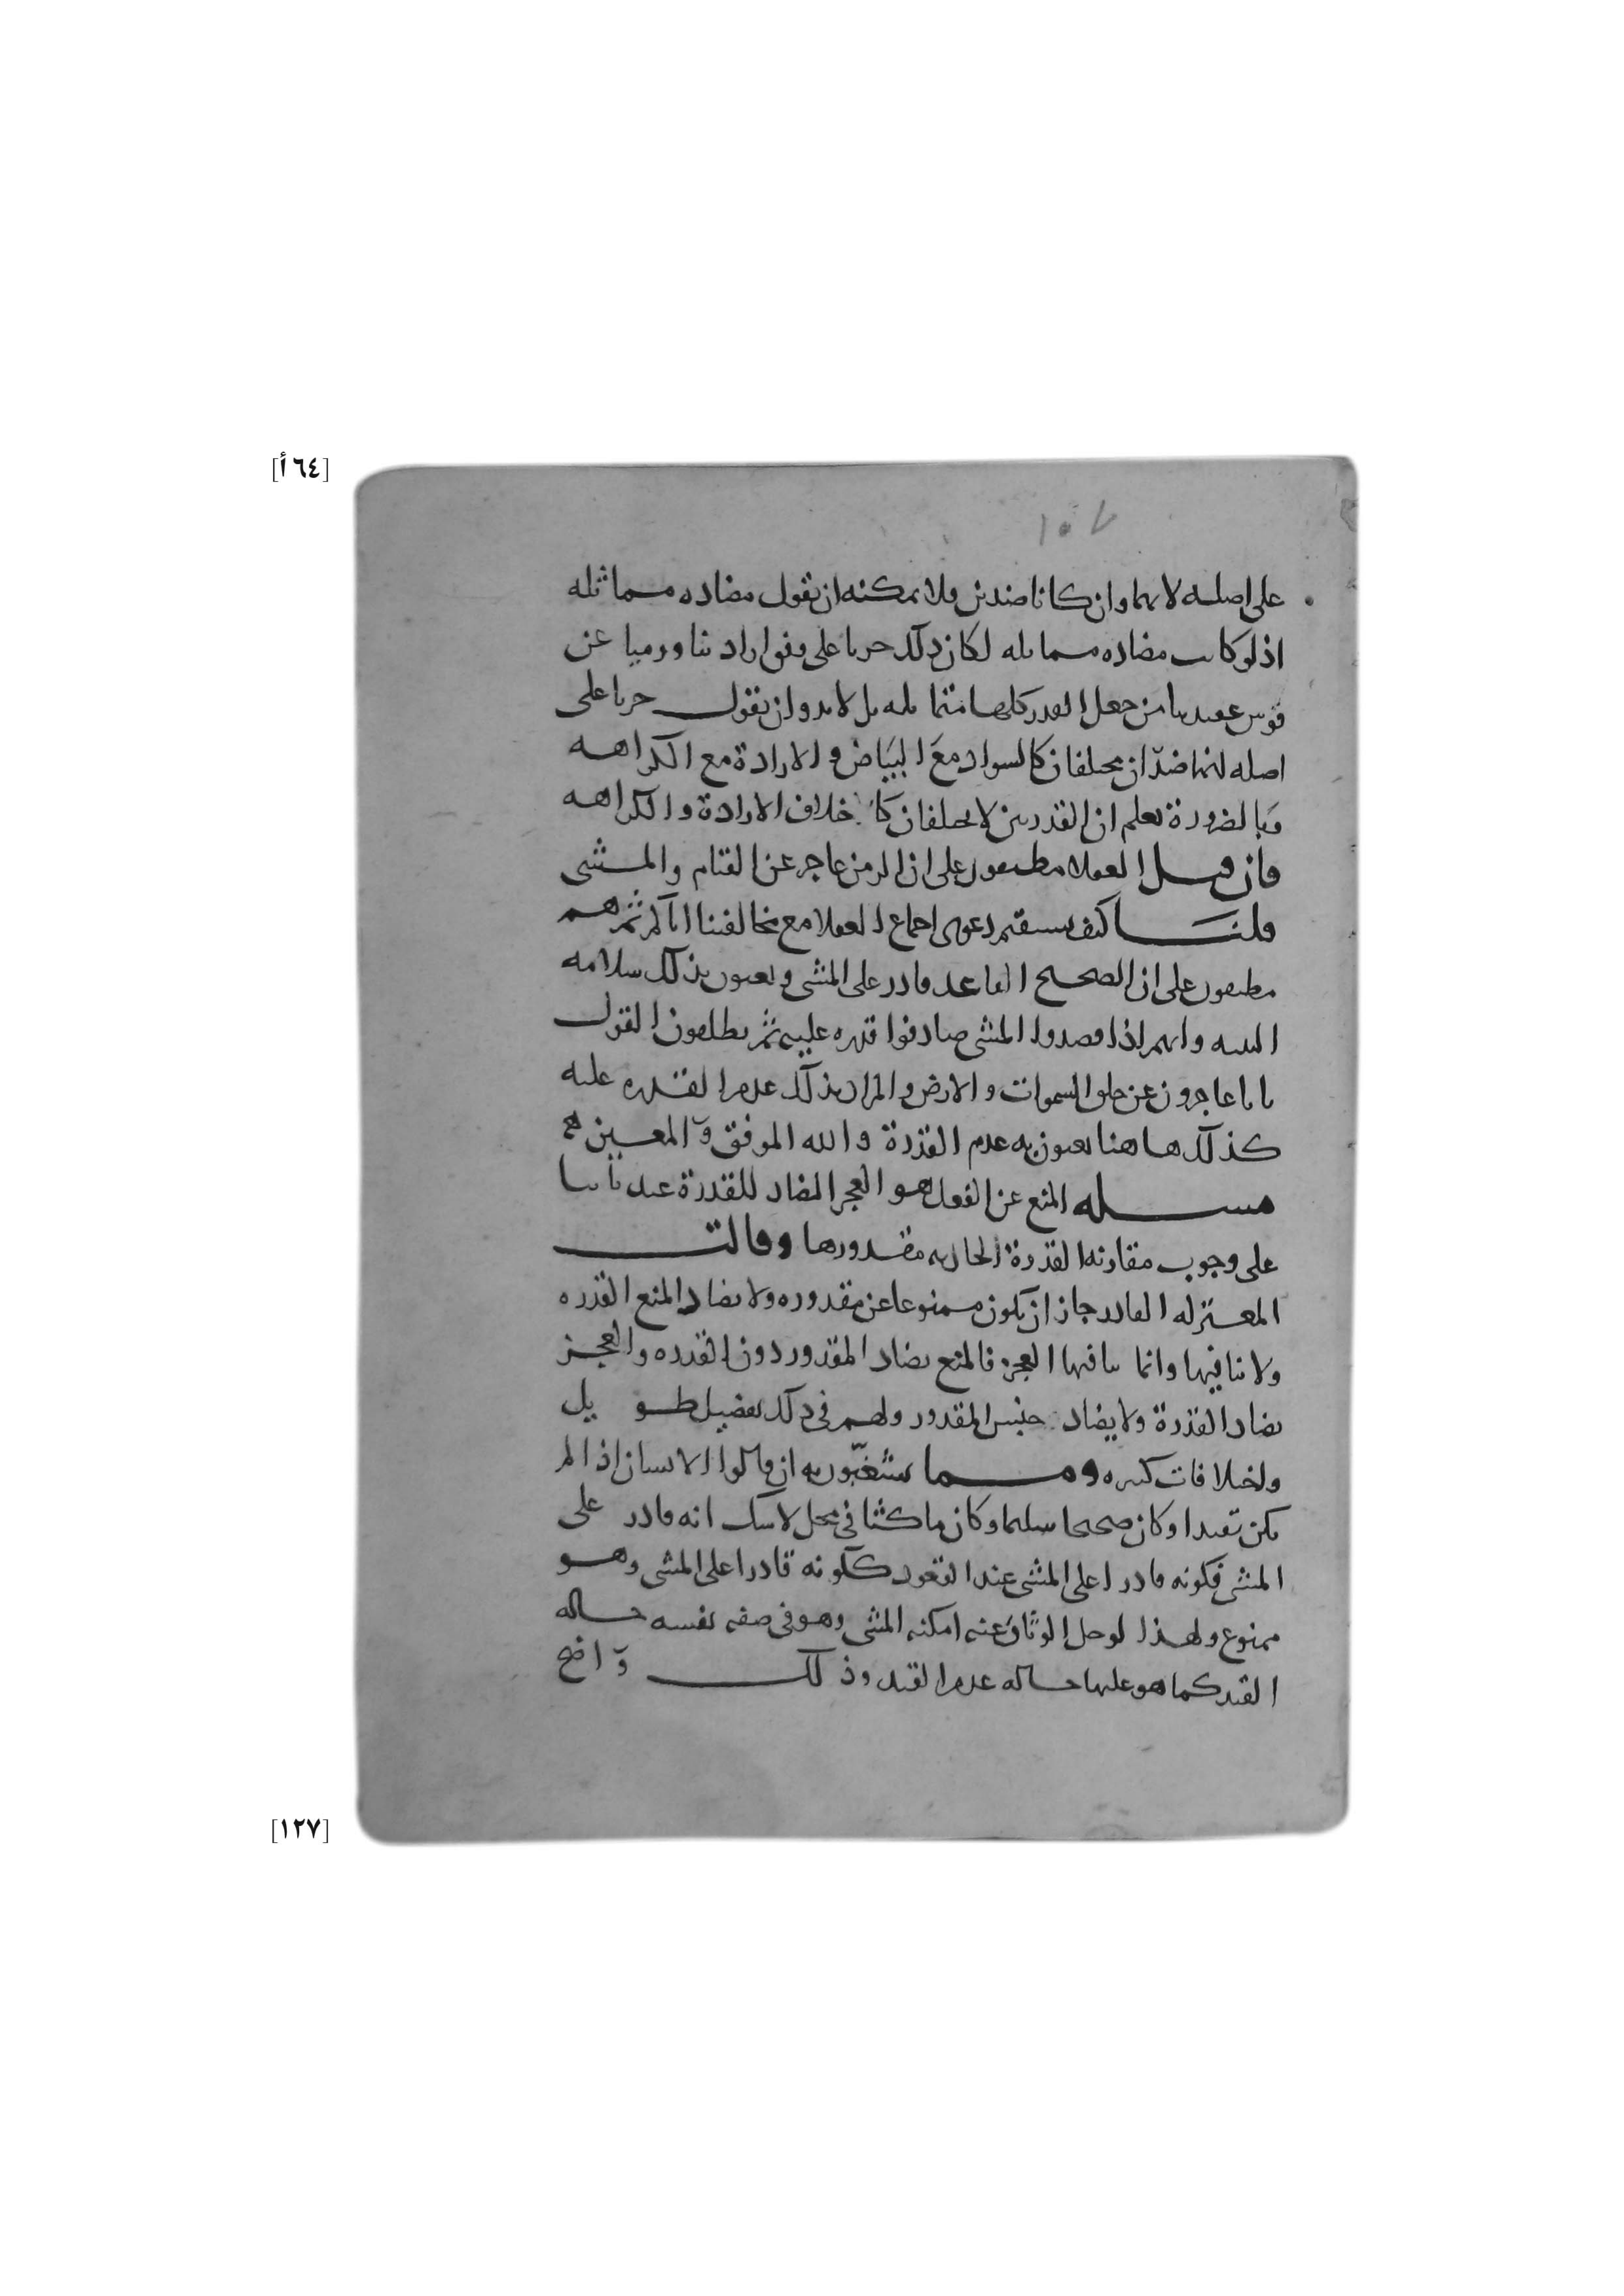 [٦٤ أ]
١٥٧
على اصله لانهما وان كانا ضدين فلا يمكنه ان يقول مضاده مماثله
اذ لو كانت مضاده مماثله لكان ذلك جريا على وفق ارادتنا ورميا عن
قوس عقيدتنا من جعل القدر كلها متماثله بل لا بد وان يقول جريا على
اصله انهما ضدّان مختلفان كالسواد مع البياض والارادة مع الكراهه
وبالضرورة نعلم ان القدرتين لا يختلفان كاختلاف الارادة والكراهه
فان قيل العقلا مطبقون على ان الزمن عاجز عن القيام والمشى
قلنا كيف يستقيم دعوى اجماع العقلا مع مخالفتنا اياكم ثم هم
مطبقون على ان الصحيح القاعد قادر على المشى ويعنون بذلك سلامه
البنيه وانهم اذا قصدوا المشى صادفوا قدره عليه ثم يطلقون القول
باناعاجزون عن خلق السموات والارض والمراد بذلك عدم القدره عليه
كذلك هاهنا يعنون به عدم القدرة والله الموفق والمعين
مسله المنع عن الفعل هو العجز المضاد للقدرة عندنا بنا
على وجوب مقارنه القدرة الحادثه مقدورها وقالت
المعتزله القادر جاز ان يكون ممنوعا عن مقدوره ولا يضاد المنع القدره
ولا ينافيها وانما ينافيها العجز فالمنع يضاد المقدور دون القدره والعجز
يضاد القدرة ولا يضاد جنس المقدور ولهم فى ذلك تفصيل طويل
واختلافات كثيره ومما يشغّبون به ان قالوا الانسان اذا لم
يكن مقيدا وكان صحيحا سليما وكان ماكثا فى محل لا شك انه قادر على
المشى فكونه قادرا على المشى عند القعود ككونه قادرا على المشى وهو
ممنوع ولهذا لو حل الوثاق عنه امكنه المشى وهو فى صفه نفسه حاله
القيد كما هو عليها حاله عدم القيد وذلك واضح
[١٢٧]